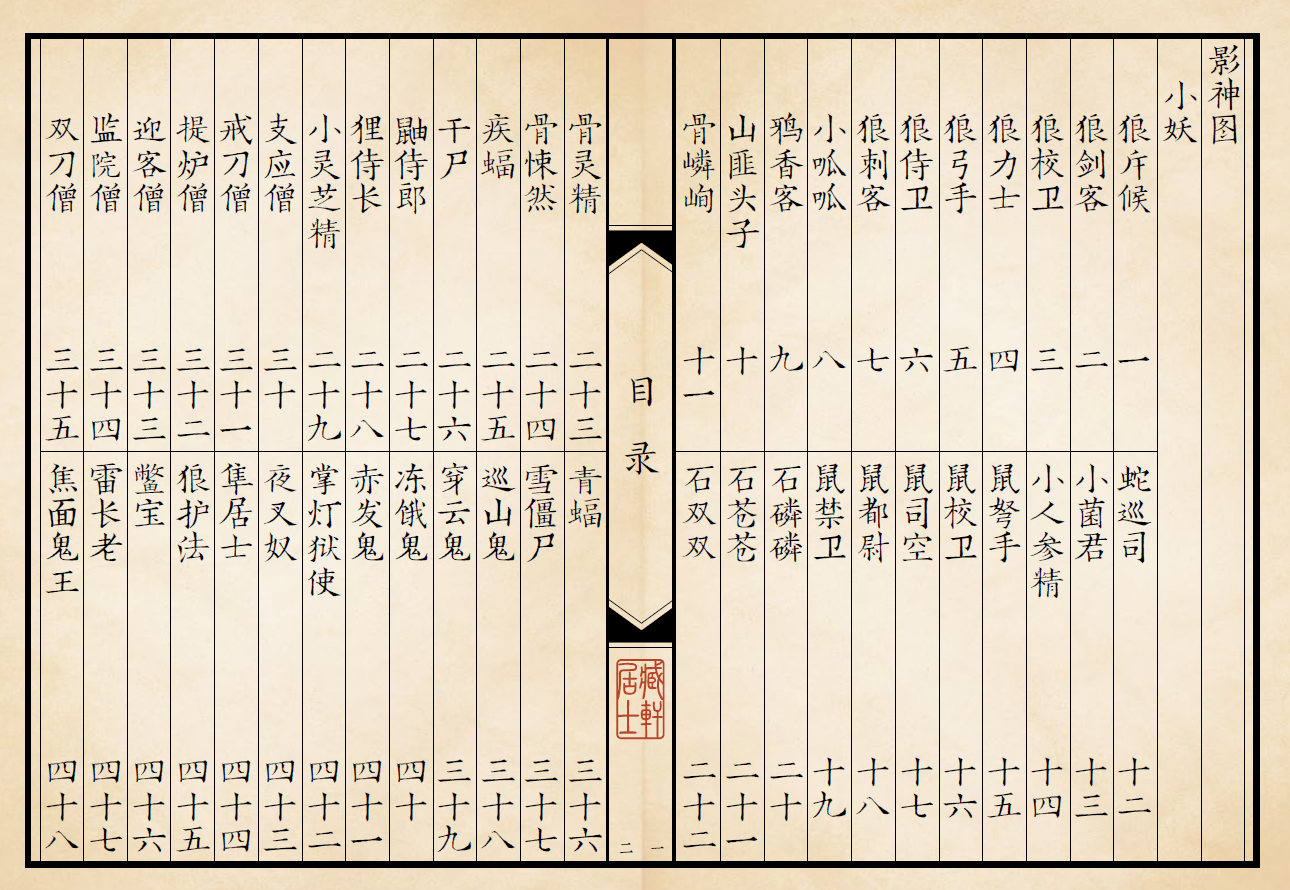 影神图
小妖
狼斥候 一
狼剑客 二
狼校卫 三
狼力士 四
狼弓手 五
狼侍卫 六
狼刺客 七
小呱呱 八
鸦香客 九
山匪头子 十
骨嶙峋 十一
蛇巡司 十二
小菌君 十三
小人参精 十四
鼠弩手 十五
鼠校卫 十六
鼠司空 十七
鼠都尉 十八
鼠禁卫 十九
石磷磷 二十
石苍苍 二十一
石双双 二十二
目录
臧軒
居士
一
二
骨灵精 二十三
骨悚然 二十四
疾蝠 二十五
干尸 二十六
鼬侍郎 二十七
狸侍长 二十八
小灵芝精 二十九
支应僧 三十
戒刀僧 三十一
提炉僧 三十二
迎客僧 三十三
监院僧 三十四
双刀僧 三十五
青蝠 三十六
雪僵尸 三十七
巡山鬼 三十八
穿云鬼 三十九
冻饿鬼 四十
赤发鬼 四十一
掌灯狱使 四十二
夜叉奴 四十三
隼居士 四十四
狼护法 四十五
鳖宝 四十六
雷长老 四十七
焦面鬼王 四十八